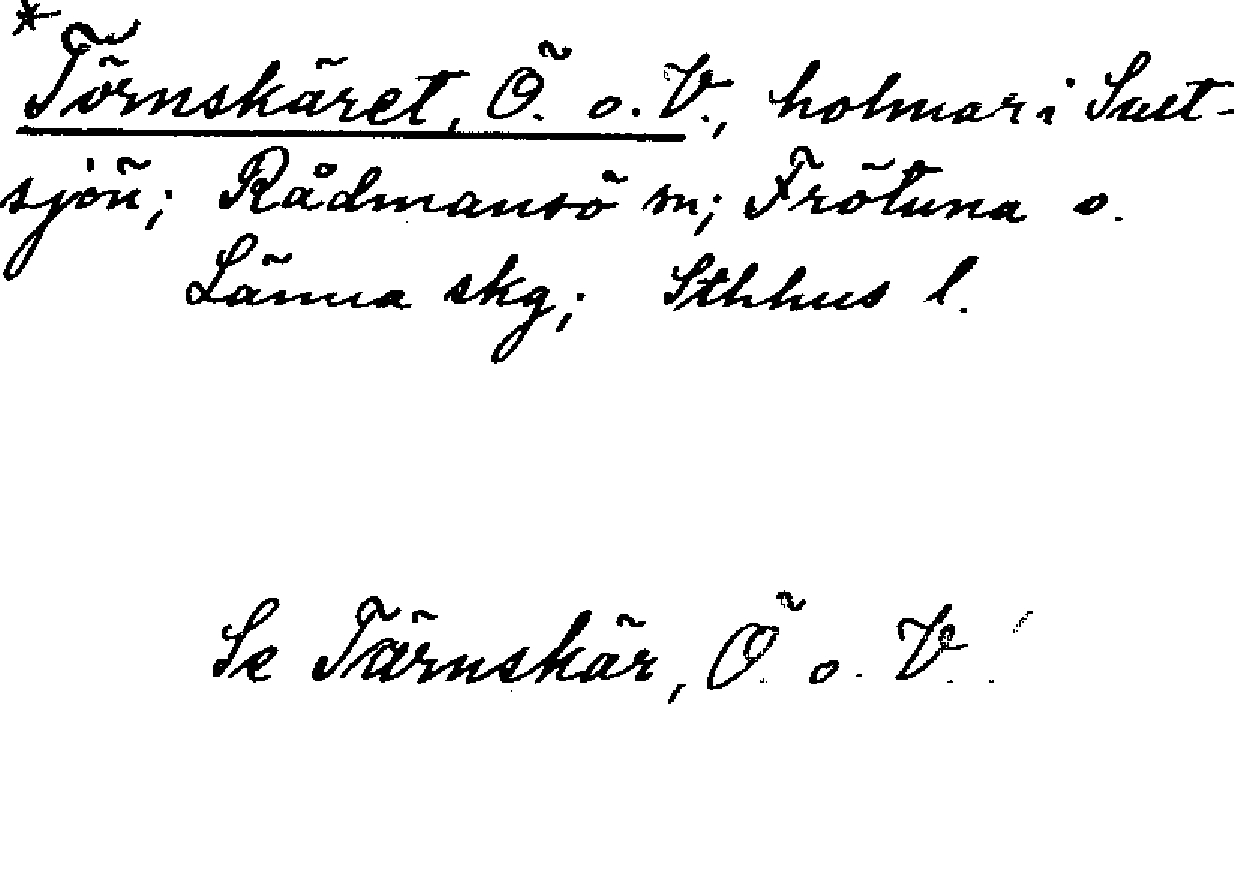 *
Törnskäret, Ö. o. V., holmar i Svet-
sjön; Rådmansö sn; Frötuna o.
Länna skg; Sthlms l.
Se Tärnskär, Ö. o. V.